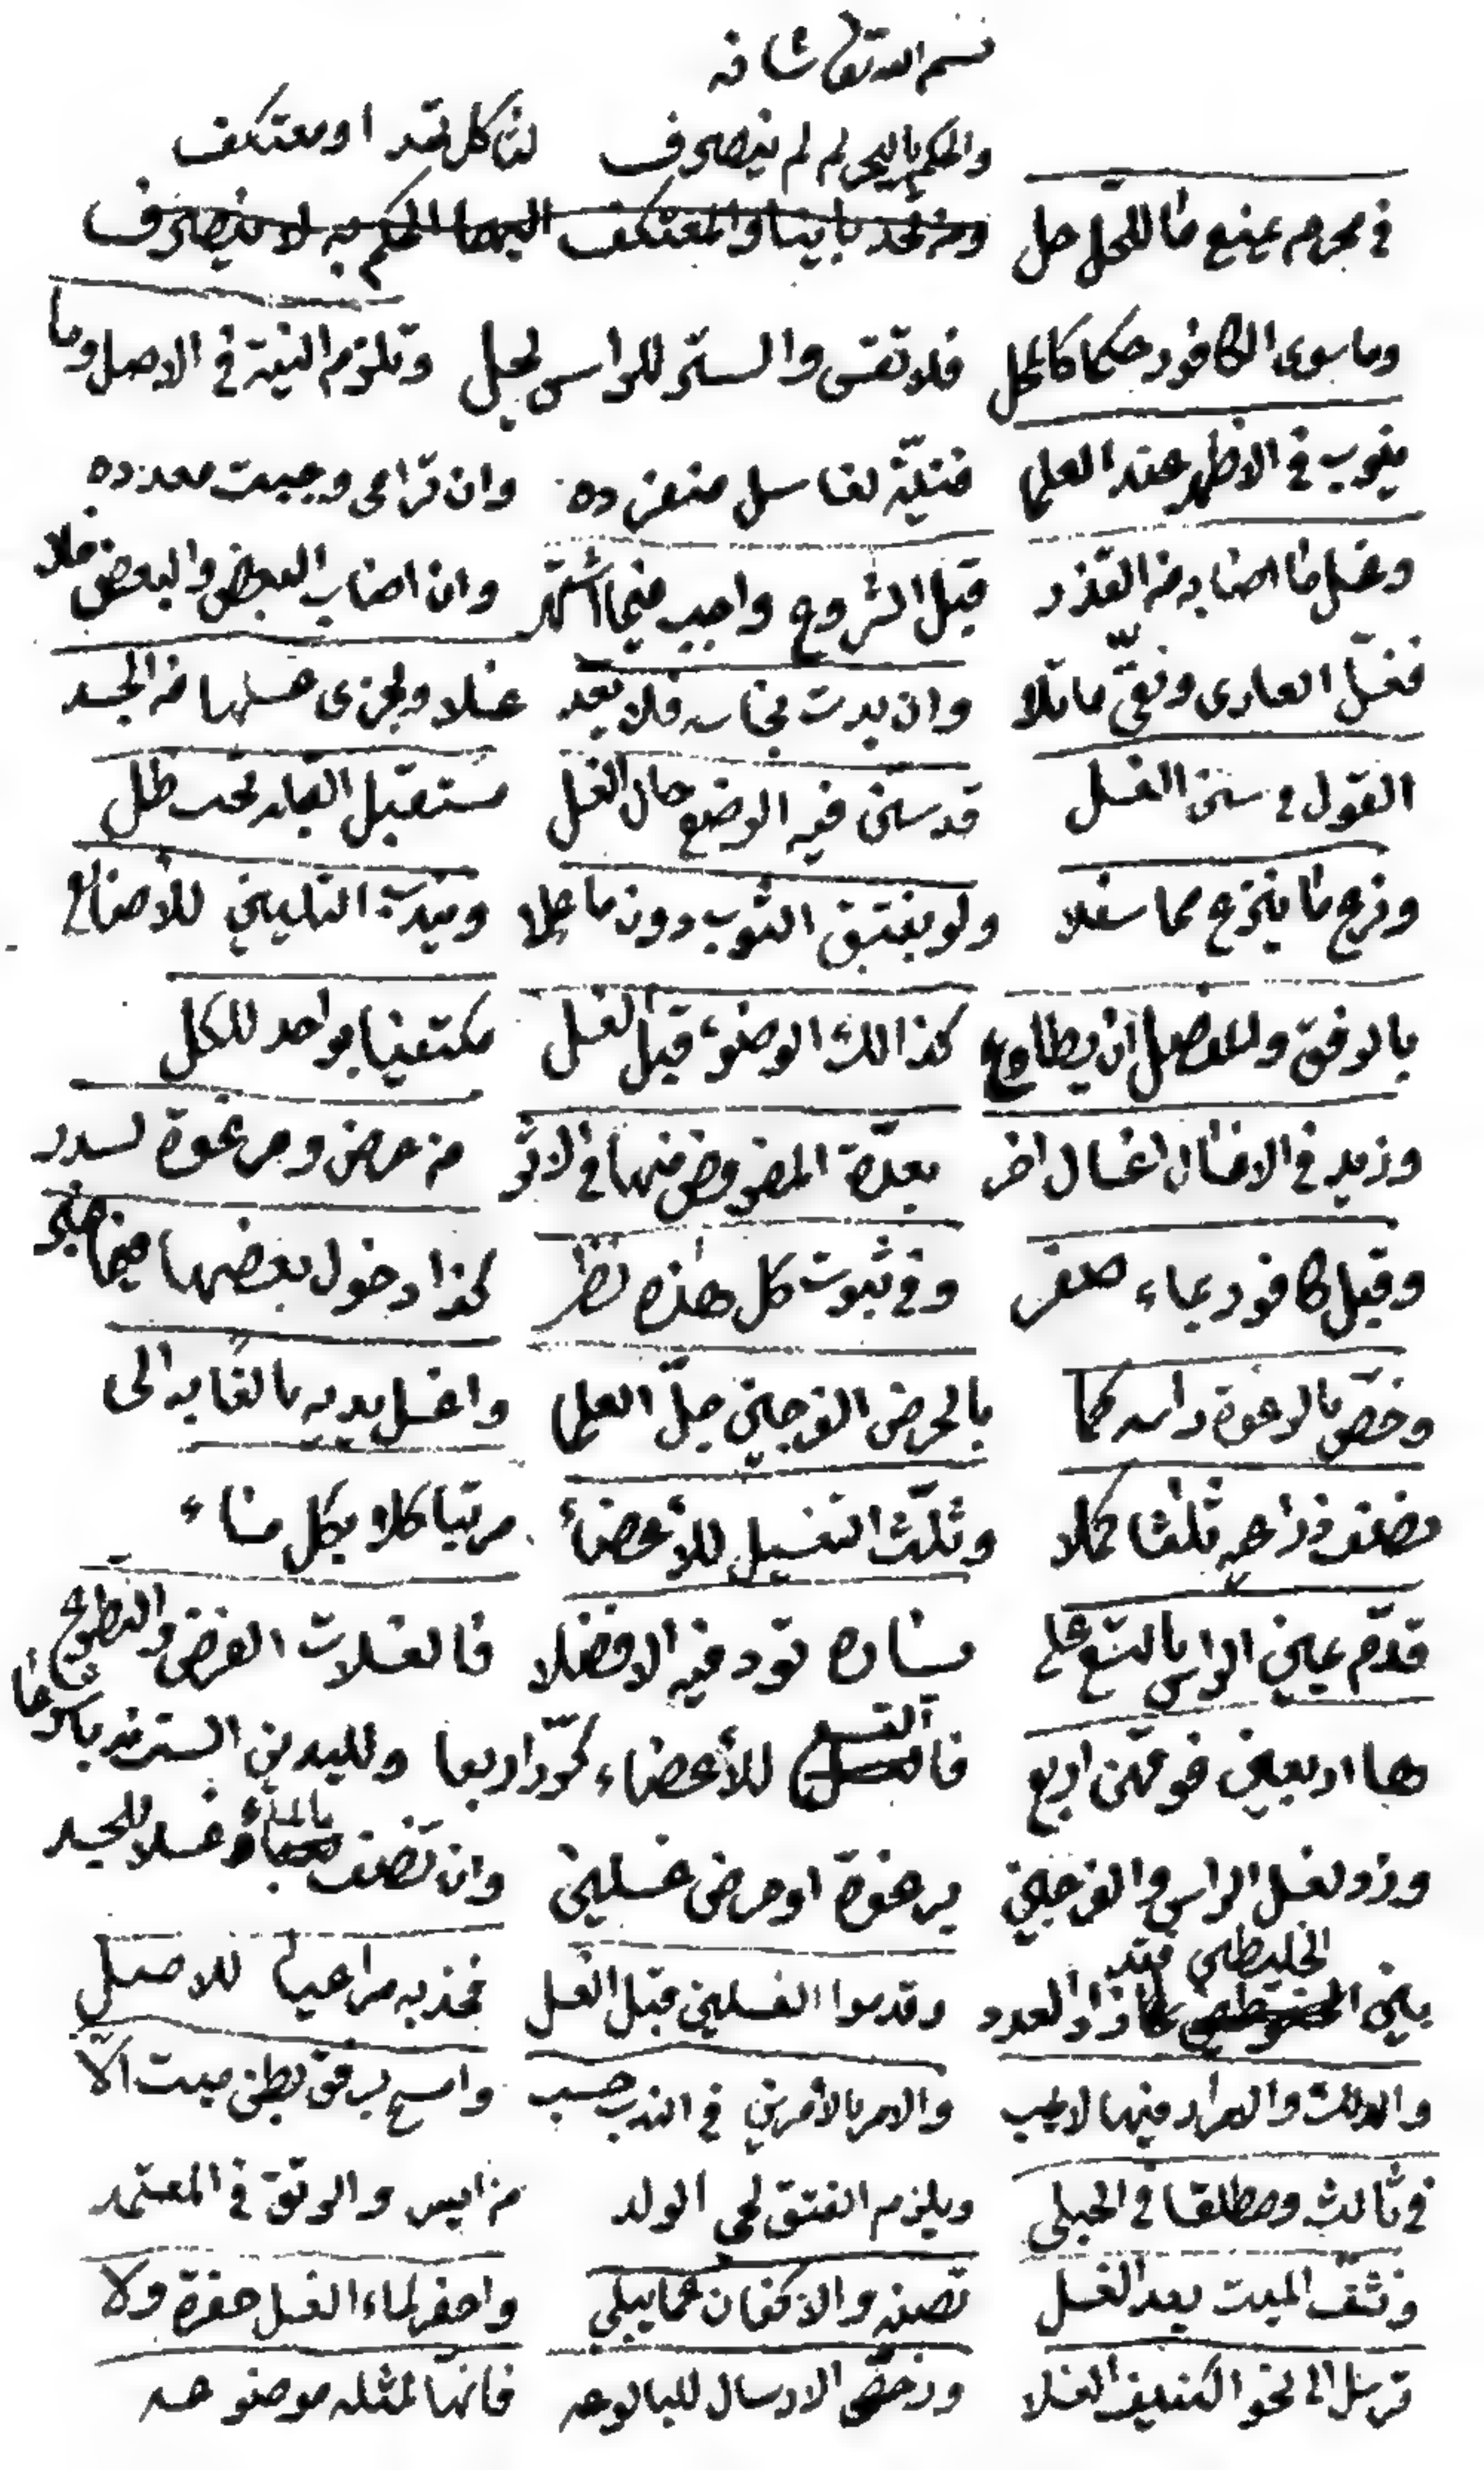 بسم الله تعالى شانه
والحكم بالتحريم لم ينصرف لتلكل تعد او معتكف
في محرم يمنع ما للمحل حل والمعتكف اليهما الحكم به لا ينصرف
وما سوى الكافور حكما كالمحل فلا تقس والستر للراس لحل وتلزم النية في الاصل وما
ينوب في الاظهر عند العلما فنيّة لغاسل منفرده وان ترامى وجبت معدده
وغسل ما اصابه من القذر قبل الشروع واجب فيما اشتهر وان اصاب البعض والبعض فلا
فغسّل العارى ونقّى ما تلا وان بدت نجاسه فلا يعد غسلا ويجزى غسلها من الجسد
القول في سنن الغسل قد سن فيه الوضع حال الغسل مستقبل القبله تحت ظل
ونزع ما ينزع مما سفلا ولو بفتق الثوب دون ما علا ويندب التليين للأصابع
بالرفق وللمفصل ان يطاوع كذالك الوضوء قبل الغسل مكتفيا بواحد للكل
وزيد في الاغسال اغسال اخر بعدّة المفروض منها في الاثر من حرض ومن رغوة لسدر
وقيل كافور بماء صفر وفي ثبوت كل هذه نظر كذا دخول بعضها فيما
وخصّ بالرغوة راسه كما بالحرض الفرجين جلّ العلما واغسل يديه بالغايه الى
نصف ذراعيه ثلثا كملا وثلّث التغسيل للأعضاء مرتبا كلا بكل ماء
قدّم يمين الراس بالتسع على يساره تود فيه الافضلا فالغسلات الفرض والتطوع
ها اربعين فوقهن اربع فالتسع للأعضاء كرّر اربعا ولليدين الست زد
وزد لغسل الراس والفرجين برغوة او حرض غسلين وان تضف بالماء غسلا للجسد
بين الخليطين فقد زاد العدد وقدموا الغسلين قبل الغسل فخذ به مراعيا للاصل
والدلك والمراد فيها لا يجب والامر بالأمرين في الندب حسب وامسح برفق بطن ميت الّا
في ثالث ومطلقا في الحبلى ويلزم الفتق لحى الولد من ايسر والرتق في المعتمد
ونشّف الميت بعد الغسل تصنه والاكفان عما يبلي واحفر لماء الغسل حفرة ولا
ترسل الى نحو الكنيف الغسلا ورخّص الارسال للبالوعه فانها لمثله موضوعه